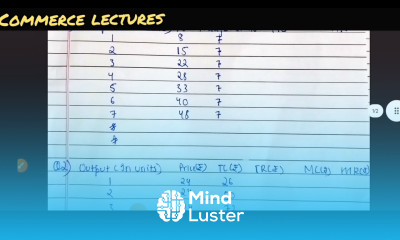 COMMERCE LECTURES
1 8 7
2 15 7
3 22 7
4 28 7
5 33 7
6 40 7
7 48 7
1/2
Q2) Output (In units) Price(₹) TC(₹) TR(₹) MC(₹) MR(₹)
1 24 26
2 24
3
Mind
Luster